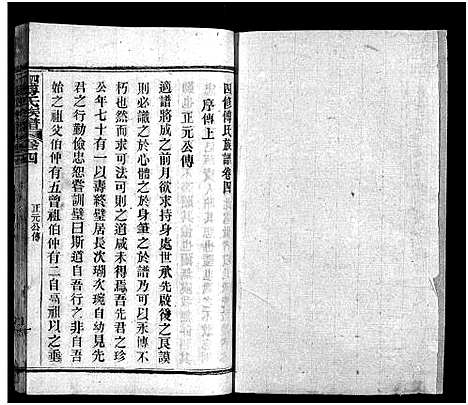 四修傅氏族譜卷四
序傳上
正元公傳
適譜將成之前月欲求持身處世承先啟後之良謨
則必識之於心體之於身筆之於譜乃可以永傳不
朽也然而當世知道之道咸未得焉吾先君之珍
公年七十有一以壽終璧居長次瑚次琬自幼見先
君之行勤儉忠恕嘗訓璧曰斯道自吾行之非自吾
始之祖父伯仲有五曾祖伯仲有二自高祖以之垂
四修傅氏族譜 卷四
正元公傳